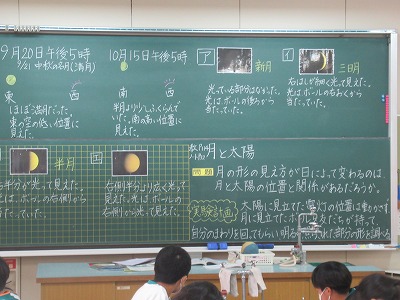 9月20日午後5時
9/21 中秋の名月(満月)
東 西
ほぼ満月だった。
東の空の低い位置に
見えた。
10月15日午後5時
南 西
半月より少しふくらんで
いた。南の高い位置に
見えた。
ア 新月
光っている部分はなかった。
光はボールの後ろから
当たっていた。
イ 三日月
右はしが細く光って見えた。
光はボールの右おくから
当たっていた。
半月
右半分が光って見えた。
光はボールの右側から
当たっていた。
エ
右側半分より広く光って
見えた。光はボールの
右側から当たっていた。
月と太陽
問題 月の形の見え方が日によって変わるのは
月と太陽の位置と関係があるだろうか。
実験計画 太陽に見立てた電灯の位置は動かさず
月に見立てたボールを友だちが持って、
自分のまわりを回ってもらい明るく照らされた部分の形を調べる